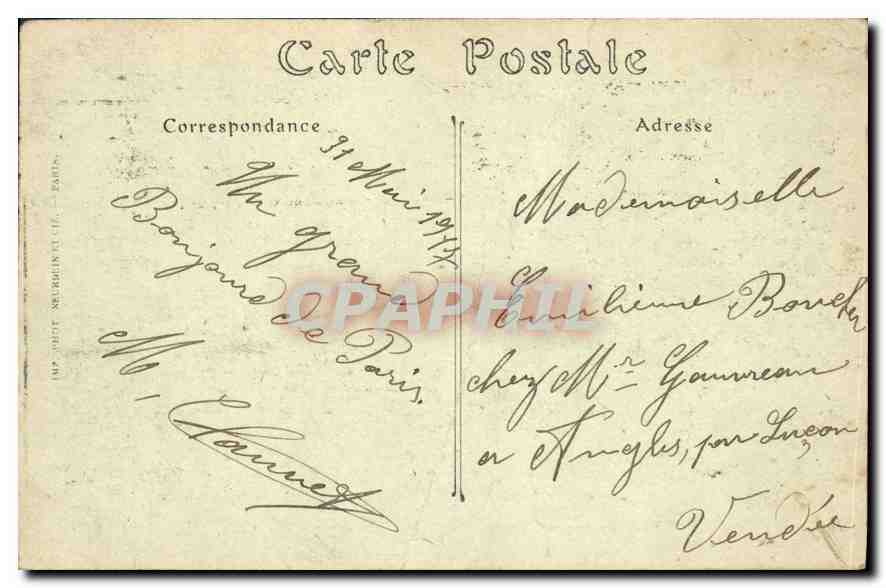 Carte Postale
Correspondance
Adresse
31 Mai 1917
Un grand
Bonjour
de Paris.
M.
Mademoiselle
Emilienne Boucher
chez Mr Gauvreau
a Angles, par Luçon
Vendée
IMP. PHOT. NEURDEIN ET CIE. — PARIS
CPAPHIL